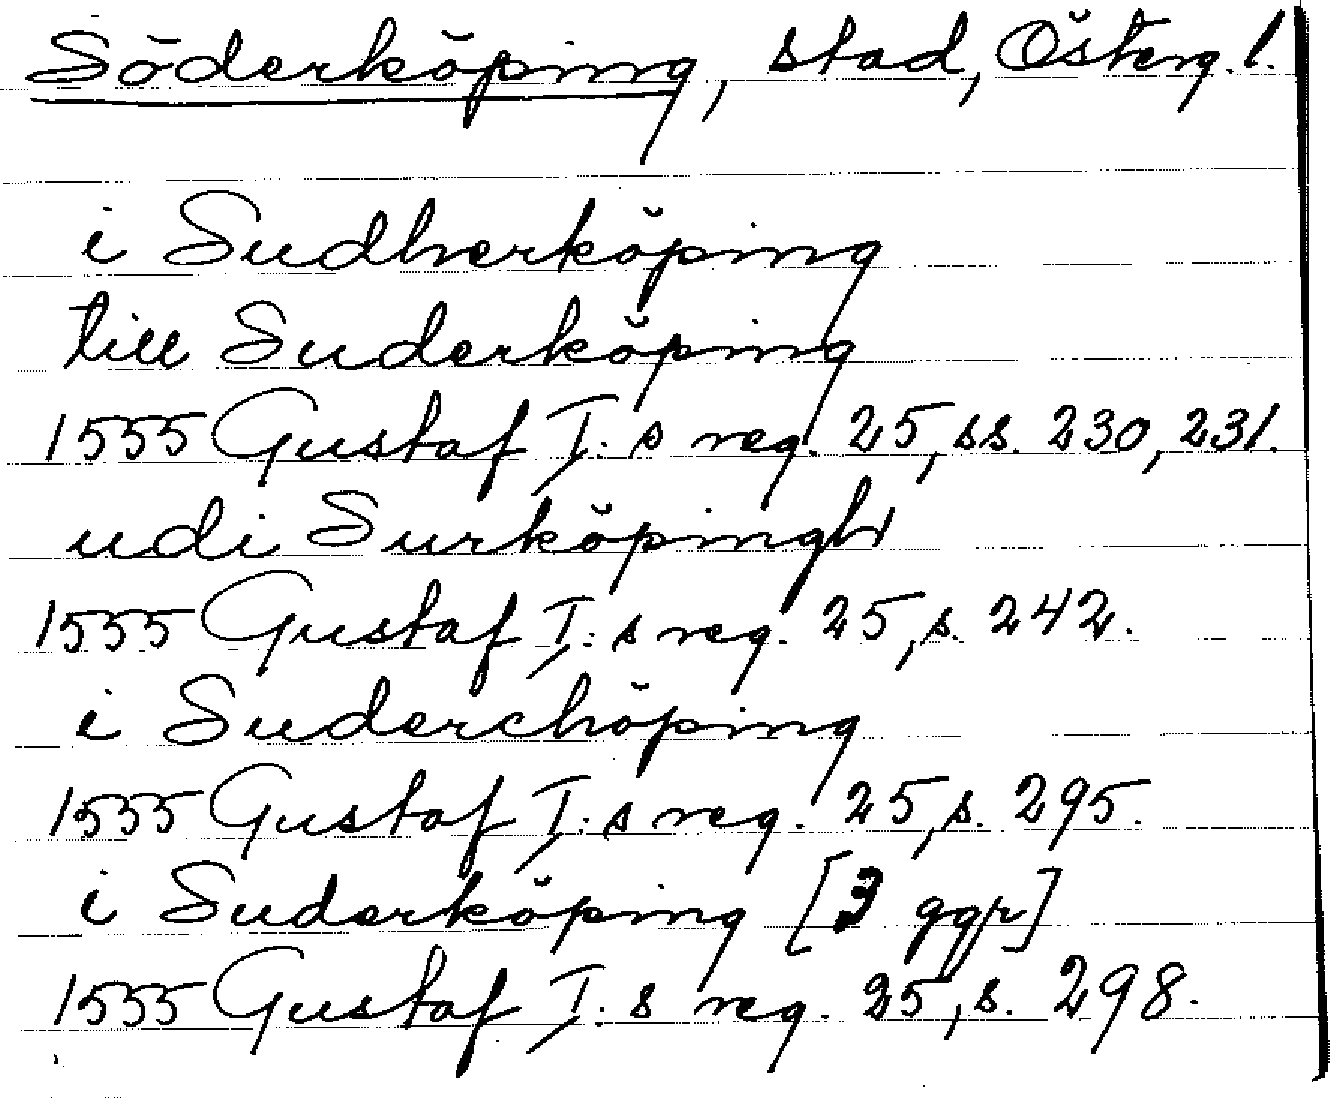 Söderköping, stad, Österg. l.
i Sudherköping
till Suderköping
1555 Gustaf I:s reg. 25, ss. 230, 231.
udi Surköpingh
1555 Gustaf I:s reg. 25, s. 242.
i Suderchöping
1555 Gustaf I:s reg. 25, s. 295.
i Suderköping [3 ggr]
1555 Gustaf I:s reg. 25, s. 298.